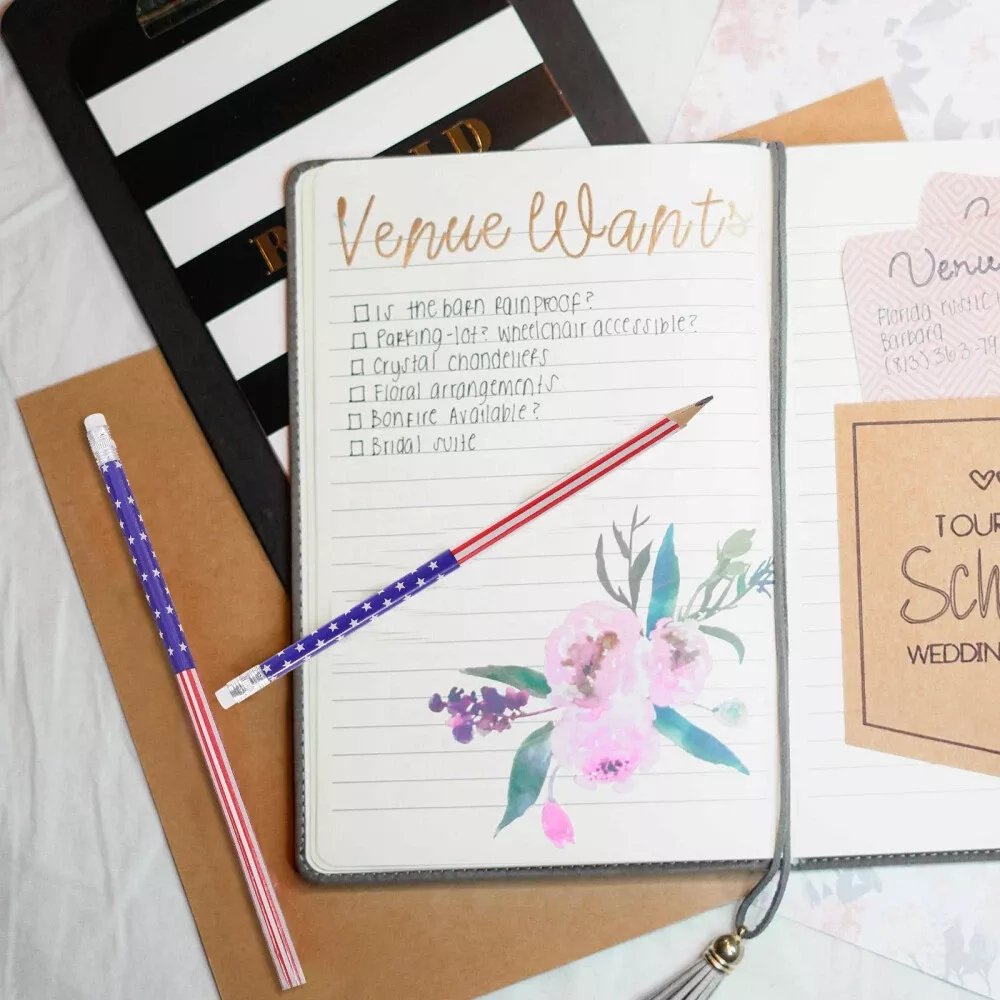 Venue Wants
Is the barn rainproof?
Parking-lot? Wheelchair accessible?
Crystal chandeliers
Floral arrangements
Bonfire Available?
Bridal suite
Florida rustic
Barbara
(813) 363-79
TOUR
WEDDIN